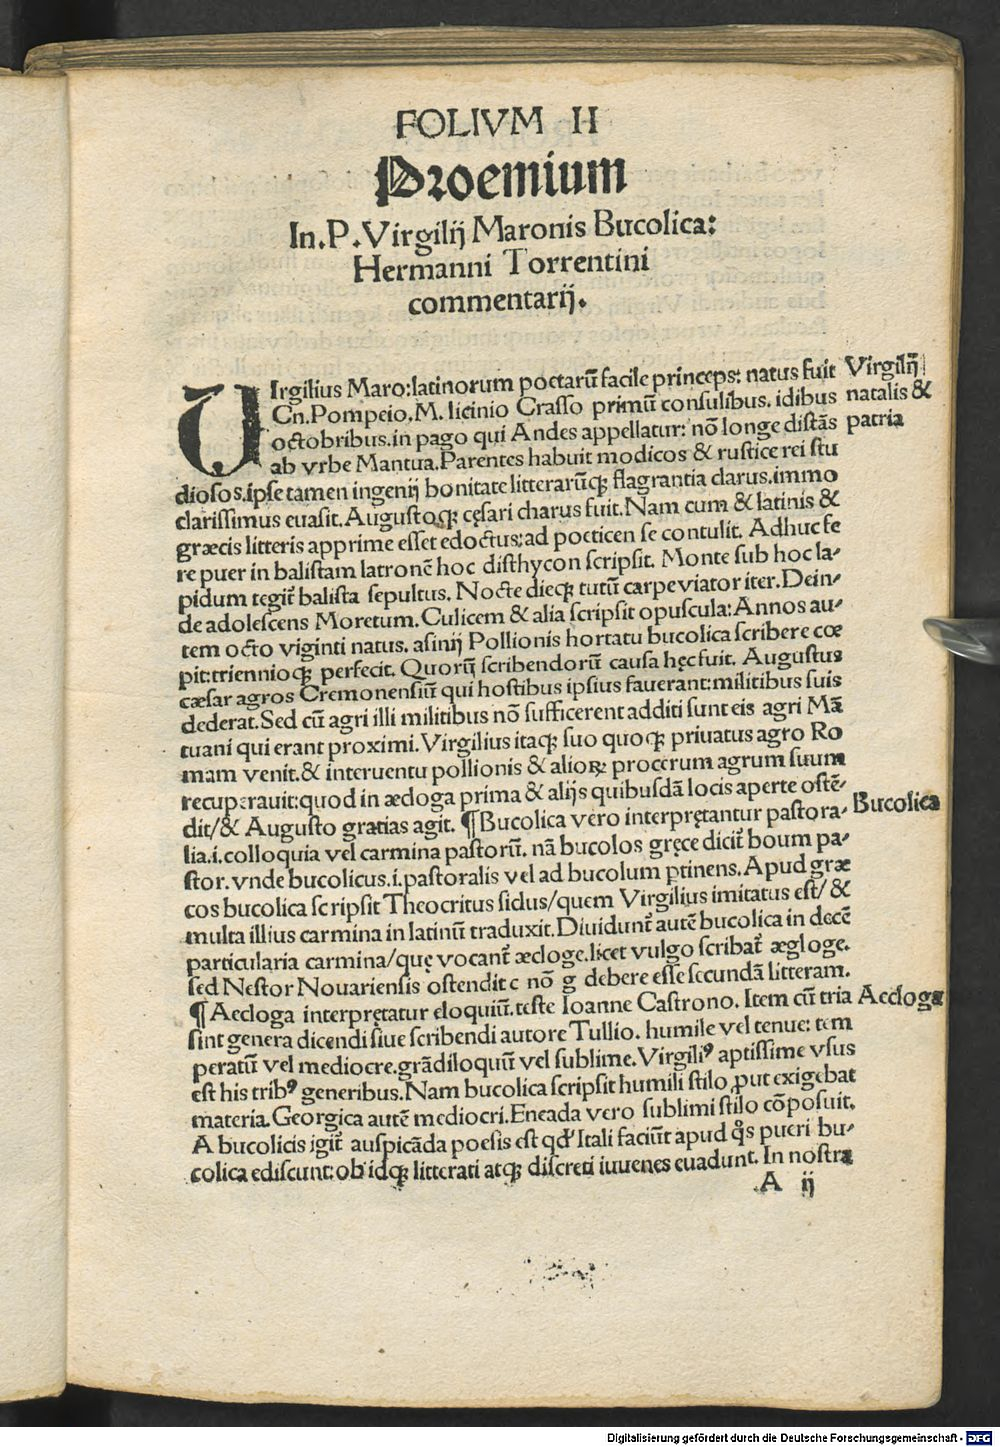 FOLIVM II
Proemium
In.P.Virgilij Maronis Bucolica:
Hermanni Torrentini
commentarij.
VIrgilius Maro:latinorum poetarū facile princeps: natus fuit
Cn.Pompeio.M. licinio Crasso primū consulibus. idibus
octobribus.in pago qui Andes appellatur: nō longe distās
ab vrbe Mantua.Parentes habuit modicos & rustice rei stu
diosos.ipse tamen ingenij bonitate litterarūqꝫ flagrantia clarus.immo
clarissimus euasit.Augustoqꝫ cęsari charus fuit.Nam cum & latinis &
græcis litteris apprime esset edoctus:ad poeticen se contulit. Adhuc fe
re puer in balistam latronē hoc disthycon scripsit. Monte sub hoc la-
pidum tegit̃ balista sepultus. Nocte dieqꝫ tutū carpe viator iter.Dein-
de adolescens Moretum.Culicem & alia scripsit opuscula:Annos au-
tem octo viginti natus. asinij Pollionis hortatu bucolica scribere cœ
pit:triennioqꝫ perfecit. Quorū scribendorū causa hęc fuit. Augustus
cæsar agros Cremonensiū qui hostibus ipsius fauerant:militibus suis
dederat.Sed cū agri illi militibus nō sufficerent additi sunt eis agri Mā
tuani qui erant proximi.Virgilius itaqꝫ suo quoqꝫ priuatus agro Ro
mam venit.& interuentu pollionis & alioꝝ procerum agrum suum
recuperauit:quod in æcloga prima & alijs quibusdā locis aperte ostē-
dit/& Augusto gratias agit. ¶Bucolica vero interprętantur pastora-
lia.i.colloquia vel carmina pastorū. nā bucolos gręce dicit̃ boum pa-
stor.vnde bucolicus.i.pastoralis vel ad bucolum ptinens.Apud græ
cos bucolica scripsit Theocritus sidus/quem Virgilius imitatus est/ &
multa illius carmina in latinū traduxit.Diuidunt̃ autē bucolica in decē
particularia carmina/quę vocant̃ æcloge.licet vulgo scribat̃ ægloge.
sed Nestor Nouariensis ostendit c nō g debere esse secundā litteram.
¶Aecloga interprętatur eloquiū.teste Ioanne Castrono. Item cū tria
sint genera dicendi siue scribendi autore Tullio. humile vel tenue: tem
peratū vel mediocre.grādiloquū vel sublime.Virgiliꝰ aptissime vsus
est his tribꝰ generibus.Nam bucolica scripsit humili stilo ꝓut exigebat
materia.Georgica autē mediocri.Eneada vero sublimi stilo cōposuit.
A bucolicis igit̃ auspicāda poesis est qd' Itali faciūt apud q̊s pueri bu-
colica ediscunt:ob idqꝫ litterati atqꝫ discreti iuuenes euadunt. In nostra
A ij
Virgilij
natalis &
patria
Bucolica
Aecloga
Digitalisierung gefördert durch die Deutsche Forschungsgemeinschaft - DFG